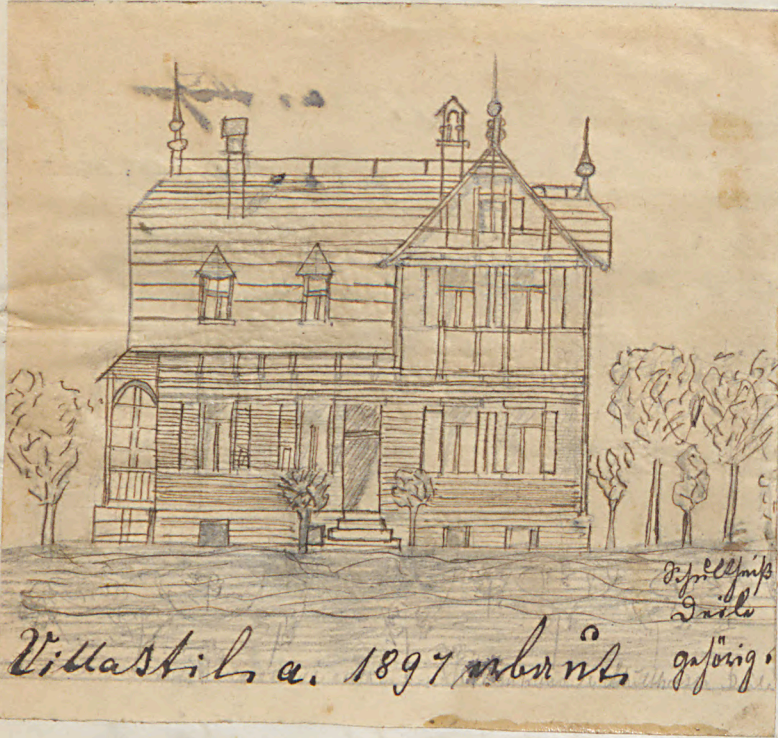 Villastil, a. 1897 erbaut.
Schultheiß
Deile
gehörig.